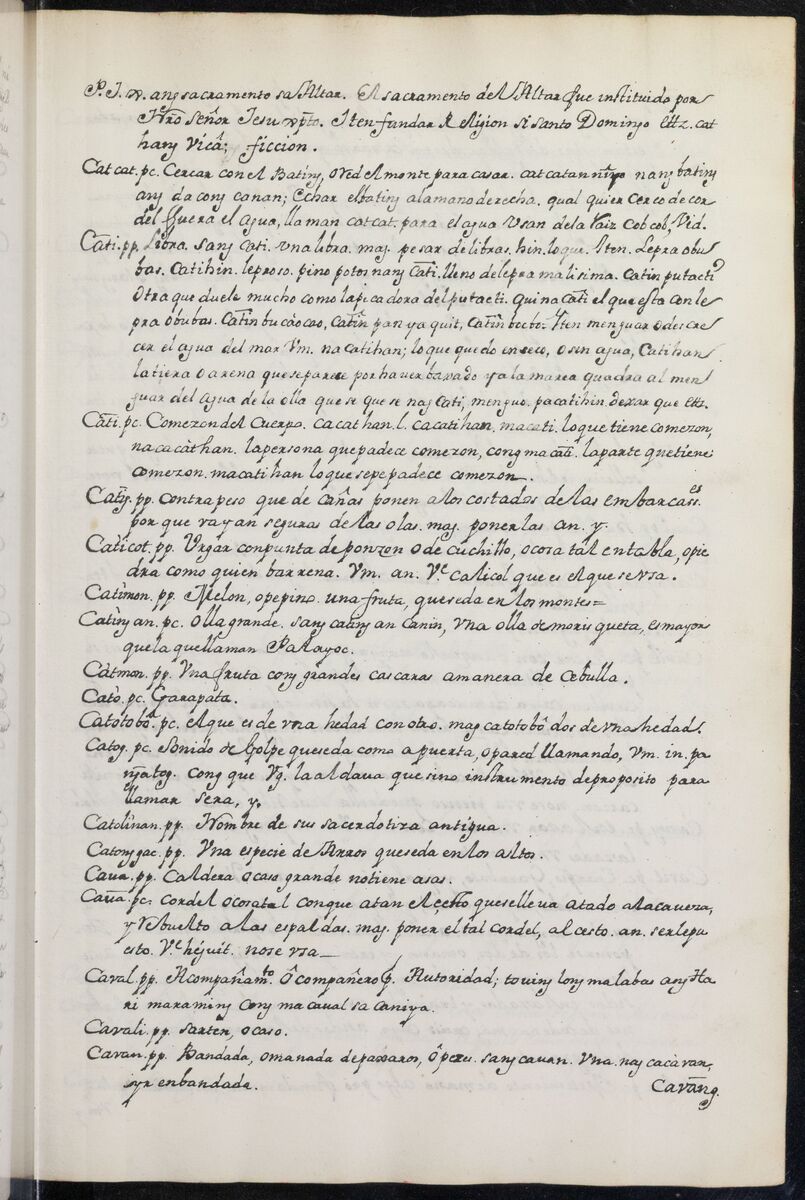 P. J. xp. ang sacramento sa Altar. El sacramento del Altar fue instituido por
Nrō Señor Jesu xpto. Iten fundar Religion si santo Domingo Ettz. cat
hang Vica; ficcion.
Catcat. pc. Cercar con el Bating, o red el monte para casar. catcatan ninyo nang bating
ang dacong canan; Echar el bating a la mano derecha. qual quier cerco de cor
del fuera el agua, llaman catcat. para el agua Vsan de la raiz cobcob, Vid.
Cati. pp. Libra. sang cati. vna libra. mag. pesar de libras. hin. lo que. Iten. Lepra o bu
bas. catihin. leproso. pino potos nang Cati. lleno de lepra malisima. catin putacti
otra que duele mucho como la picadora del putacti. quinacati el que esta con le
pra o bubas. catin bucàocao, catin panyaquit, catin bocto. Iten menguar o descre
cer el agua del mar Vm. nacatihan; lo que quedo en seco, o sin agua, Catihan
la tiera o arena que se parece por haver baxado ya la marea quadra al men
guar del agua de la olla que se que se nag cati, menguo. pacatihin. dexar que Ettz.
Cati. pc. Comezon del Cuerpo. cacathan. l. cacatihan, macati. lo que tiene comezon,
nacacàthan. la persona que padece comezon, cong macati. la parte que tiene
comezon. macatihan lo que se pepadece comezon.
Catig. pp. contrapeso que de cañas ponen a los costados de las embarcass.es
por que vayan seguras de las olas. mag. ponerlas an. y.
Caticot. pp. Vrgar con punta de ponzon o de cuchillo, o cosa tal en tabla, o pie
dra como quien barrena. Vm. an. Ve calicol que es el que se vsa.
Catimon. pp. Melon, o pepino. una fruta, que se da en los montes=
Catingan. pc. olla grande. sang catingan canin, vna olla de morisqueta, es mayor
que la que llaman Palayoc.
Càtmon. pp. Vna fruta cong grandes cascaras a manera de cebulla.
Cato. pc. Garapata.
Catotobo. pc. el que es de vna hedad con otro. mag catotobo dos de vna hedad.
Catog. pc. sonido de Golpe que se da como a puerta, o pared llamando, Vm. in. pa
ngatog. cong que Vg. la aldava que sino instrumento de proposito para
llamar sera, y.
Catolinan. pp. Nombre de sus sacerdotiza antigua.
Catongcac. pp. Vna especie de Arros que se da en los altos.
Caua. pp. Caldera o caso grande no tiene asas.
Caua. pc. cordel o cosa tal con que atan el cesto que se lleva atado a la cavera,
y rebuelto a las espaldas. mag. poner el tal cordel, al cesto. an. ser le pu
esto. Ve héquit. no se vsa__
Caval. pp. Acompañamto. ô compañero p. Autoridad; touing long malabas ang Ha
ri maraming cong macaual sa caniya.
Cavali. pp. sarten, o caso.
Cavan. pp. Bandada, o manada de paxaros, ô peces. sang cauan. Vna. nag cacàvan,
yr en bandada.
Cavang.